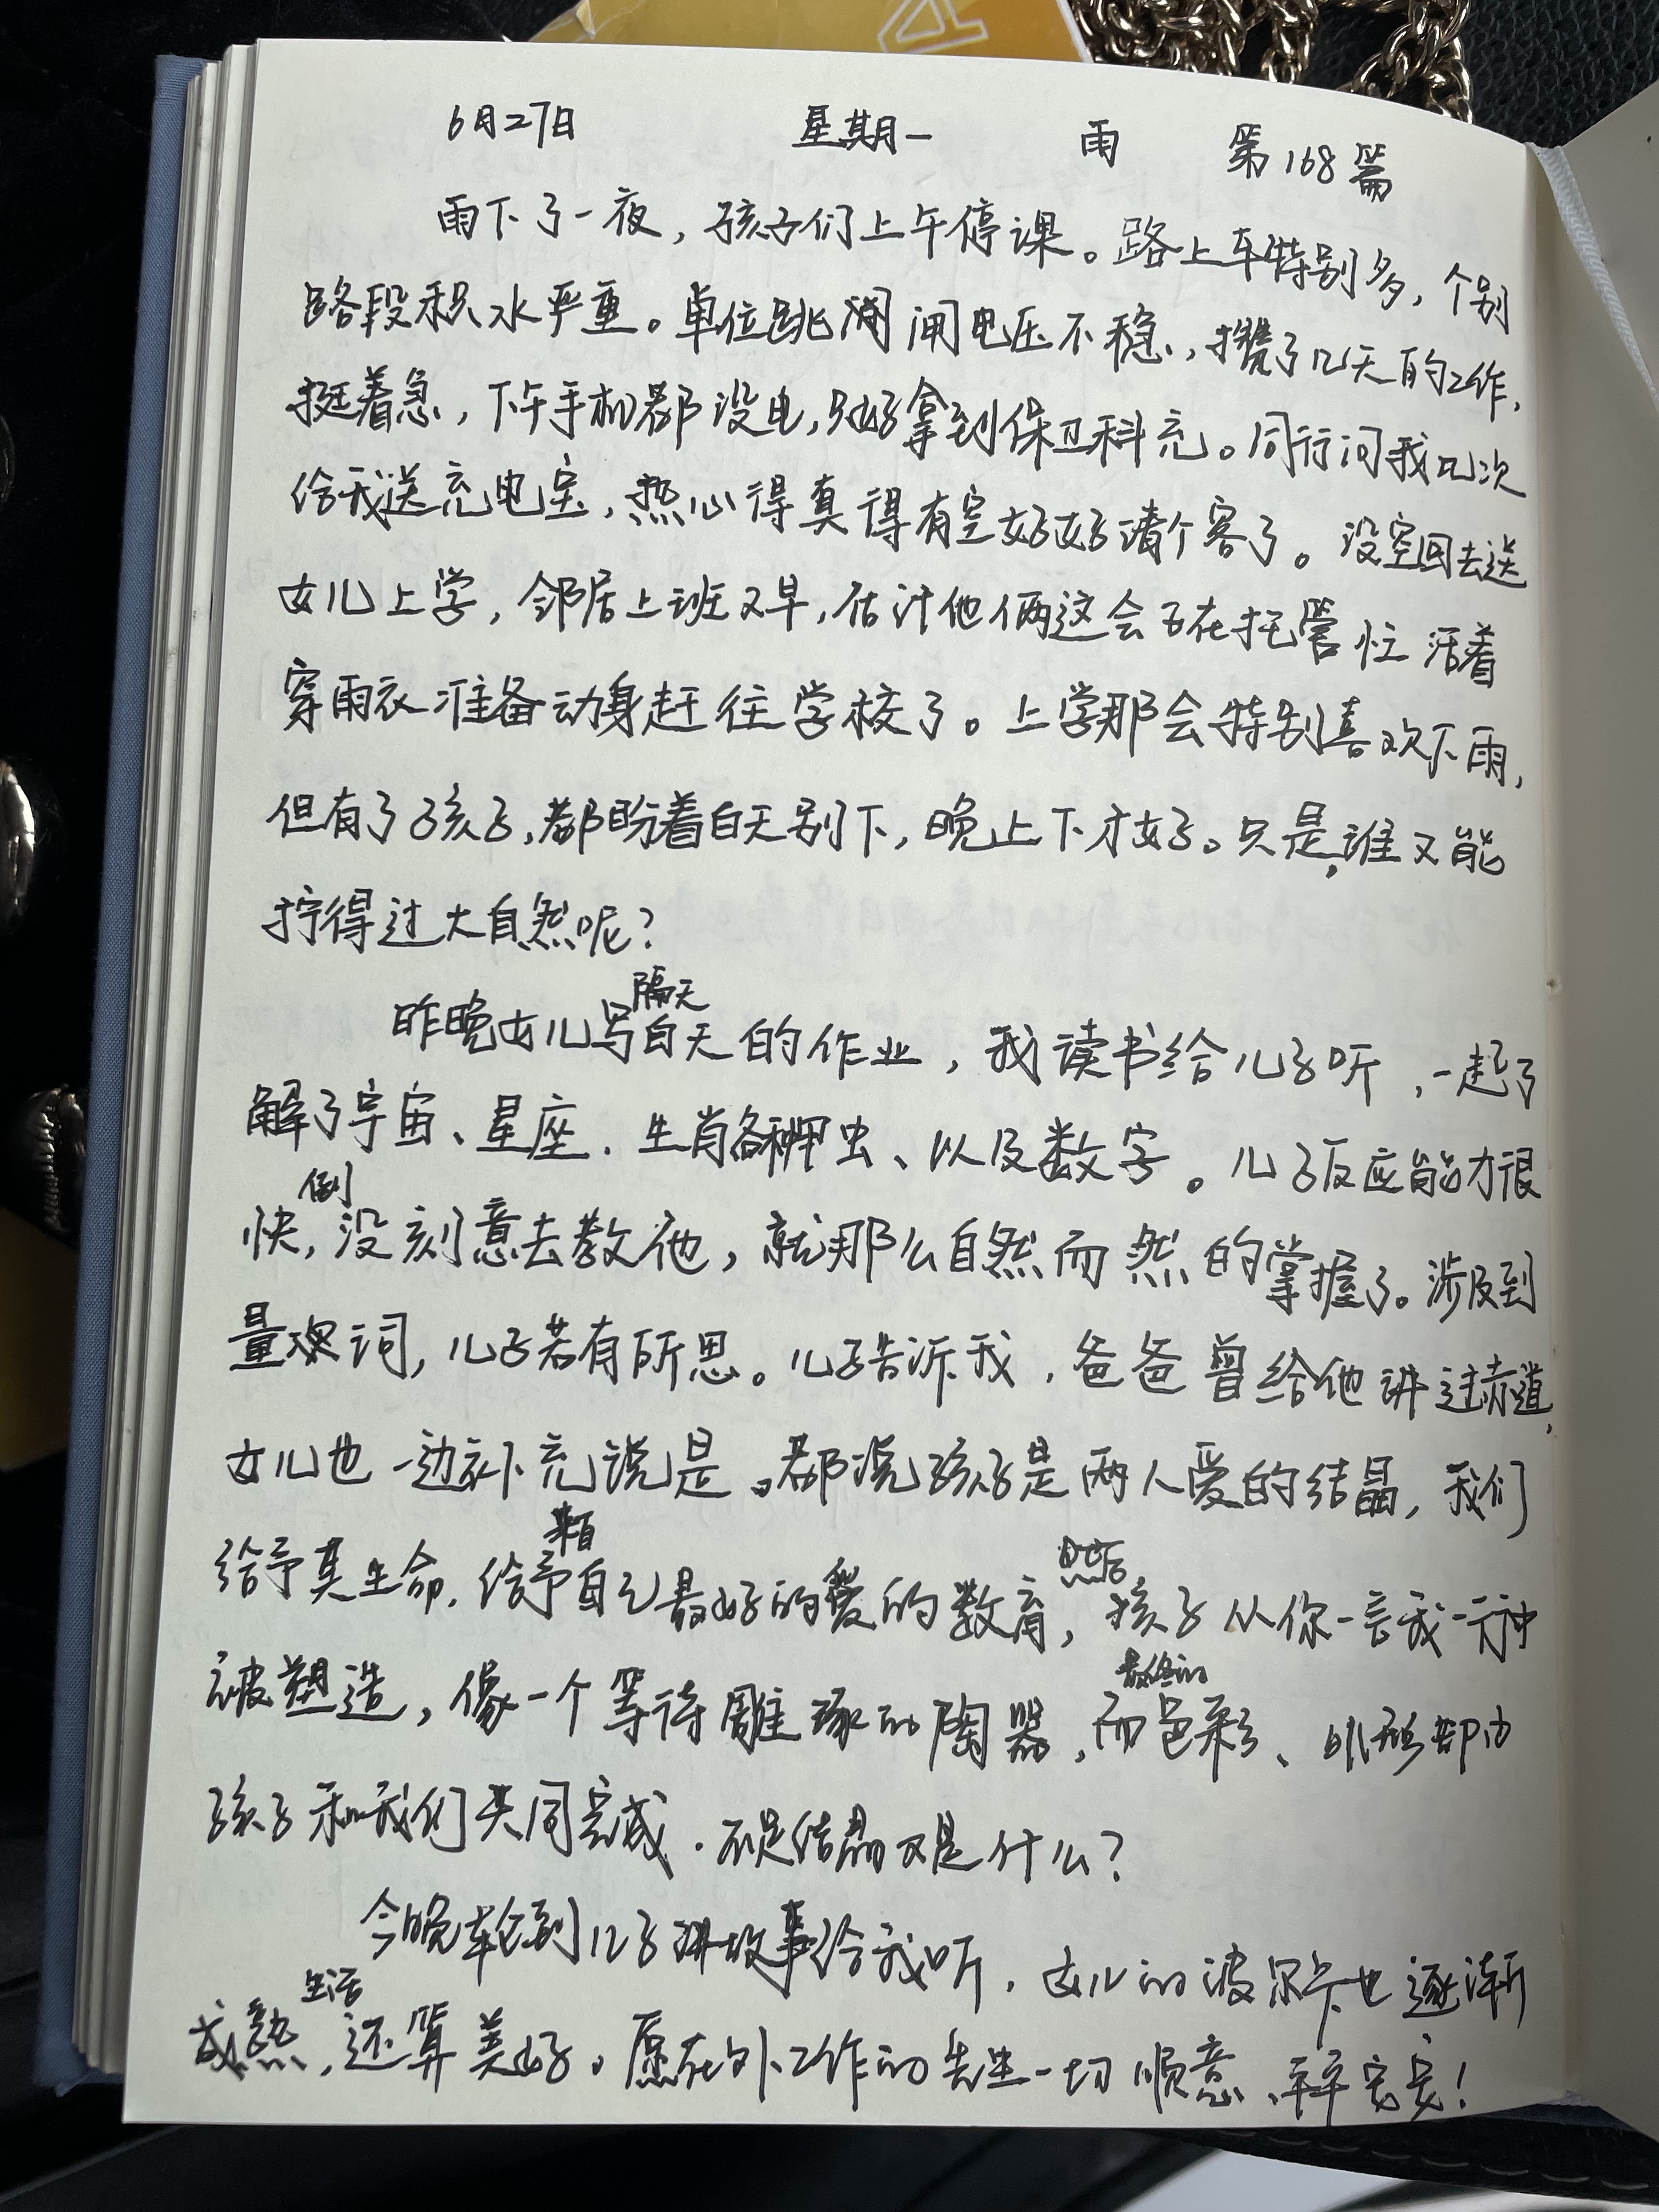 6月27日 星期一 雨 第168篇
雨下了一夜，孩子们上午停课。路上车特别多，个别
路段积水严重。单位跳闸 闸电压不稳，攒了几天的工作，
挺着急，下午手机都没电，只好拿到保卫科充。同行问我几次
给我送充电宝，热心得真得有空好好请个客了。没空回去送
女儿上学，邻居上班又早，估计他俩这会子在托管忙活着
穿雨衣准备动身赶往学校了。上学那会特别喜欢下雨，
但有了孩子，都盼着白天别下，晚上下才好。只是，谁又能
拧得过大自然呢？
隔天
昨晚女儿写白天的作业，我读书给儿子听，一起了
解了宇宙、星座、生肖各种甲虫、以及数字。儿子反应能力很
倒
快，没刻意去教他，就那么自然而然的掌握了。涉及到
量词，儿子若有所思。儿子告诉我，爸爸曾给他讲过赤道，
女儿也一边补充说是。都说孩子是两人爱的结晶，我们
来自
给予其生命，给予自己最好的爱的教育，孩子从你一言我一行中
然后
最终的
被塑造，像一个等待雕琢的陶器，而色彩、外形都由
孩子和我们共同完成，不是结晶又是什么？
今晚轮到儿子讲故事给我听，女儿的波尔卡也逐渐
生活
成熟，还算美好。愿在外工作的先生一切顺意、平平安安！